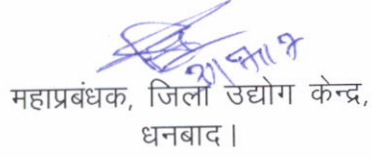 महाप्रबंधक, जिला उद्योग केन्द्र,
धनबाद।